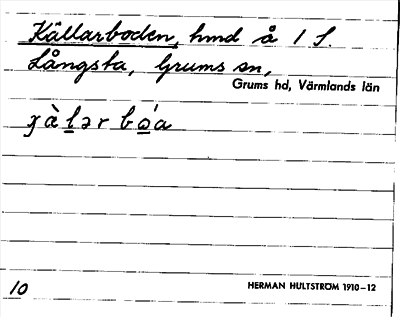 Källarboden, hmd å 1 f.
Långsta, Grums sn,
Grums hd, Värmlands län
10
HERMAN HULTSTRÖM 1910–12